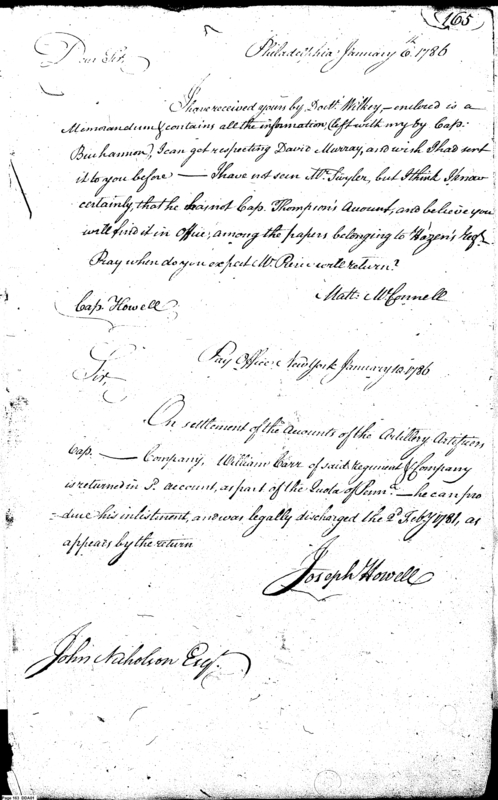 165
Philadelphia January 6th 1786
Dear Sir,
I have received yours by Doctr. — enclosed is a
Memorandum & contains all the information, left with my by Cap:
Buchannon, I can get respecting David Murray, and wish I had sent
it to you before — I have not seen Mr. but I think I know
certainly, that he has not Cap. Thompson's Account, and believe you
will find it in Office, among the papers belonging to Hazen's Regt.
Pray when do you expect Mr. will return?
Matt: McConnell
Cap. Howell
Pay Office, New York January 10. 1786
Sir,
On settlement of the Accounts of the Artillery Artificers
Cap. — Company, William Carr of said Regiment & Company
is returned in Pr. account, as part of the Quota of Penna. — he can pro
=duce his inlistment, and was legally discharged the 2d. Feby. 1781, as
appears by the return
Joseph Howell
John Nicholson Esqr.